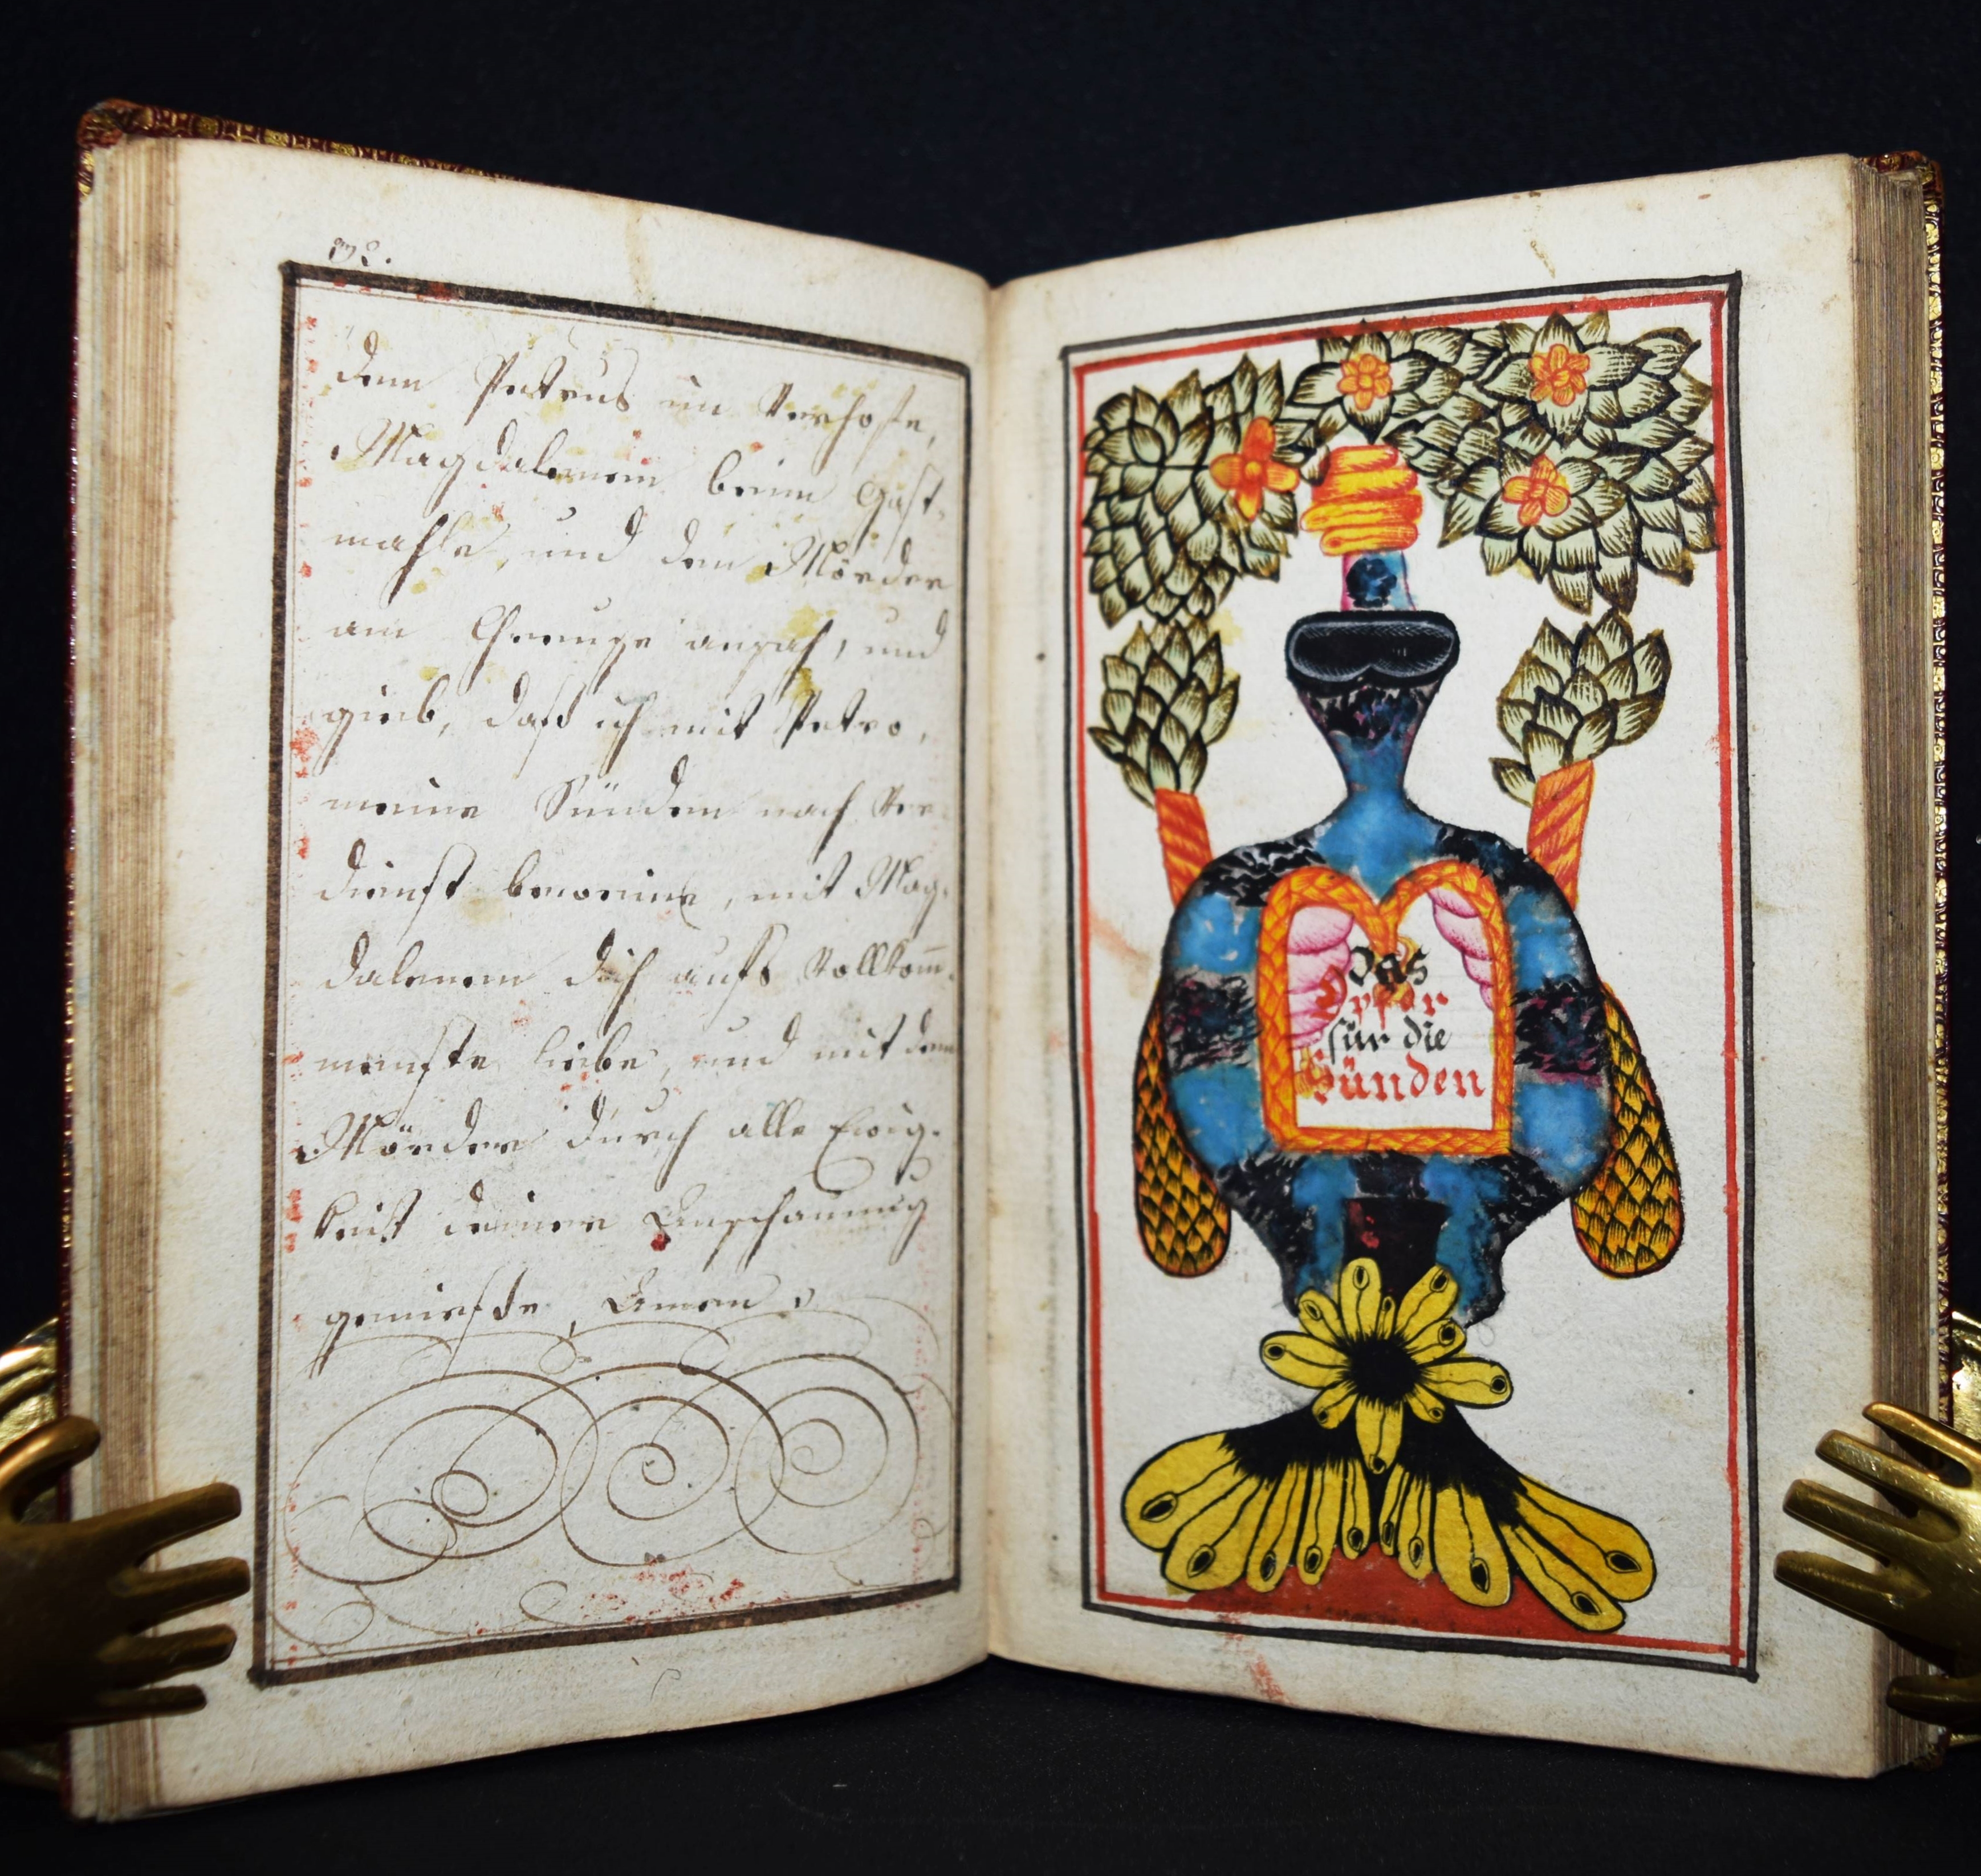 172.
dem Petrus im Vorhofe,
Magdalenem beim Gast-
mahle, und dem Mörder
am Chreuze ansah, und
gieb, daß ich mit Petro,
meine Sünden nach Ver-
dienst beweine, mit Mag-
dalenem dich aufs vollkom̅-
menste liebe, und mit dem
Mörder durch alle Ewig-
keit deiner Anschauung
genieße, Amen.
Das
Opfer
für die
Sünden